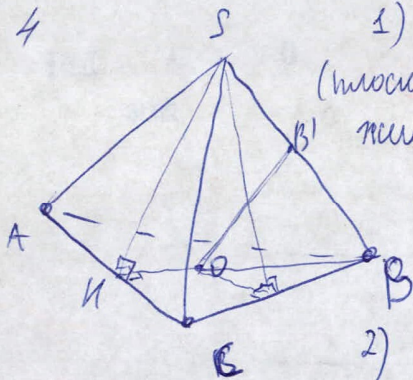 4
S
1)
(плоско
B'
A
И
O
B
C
2)